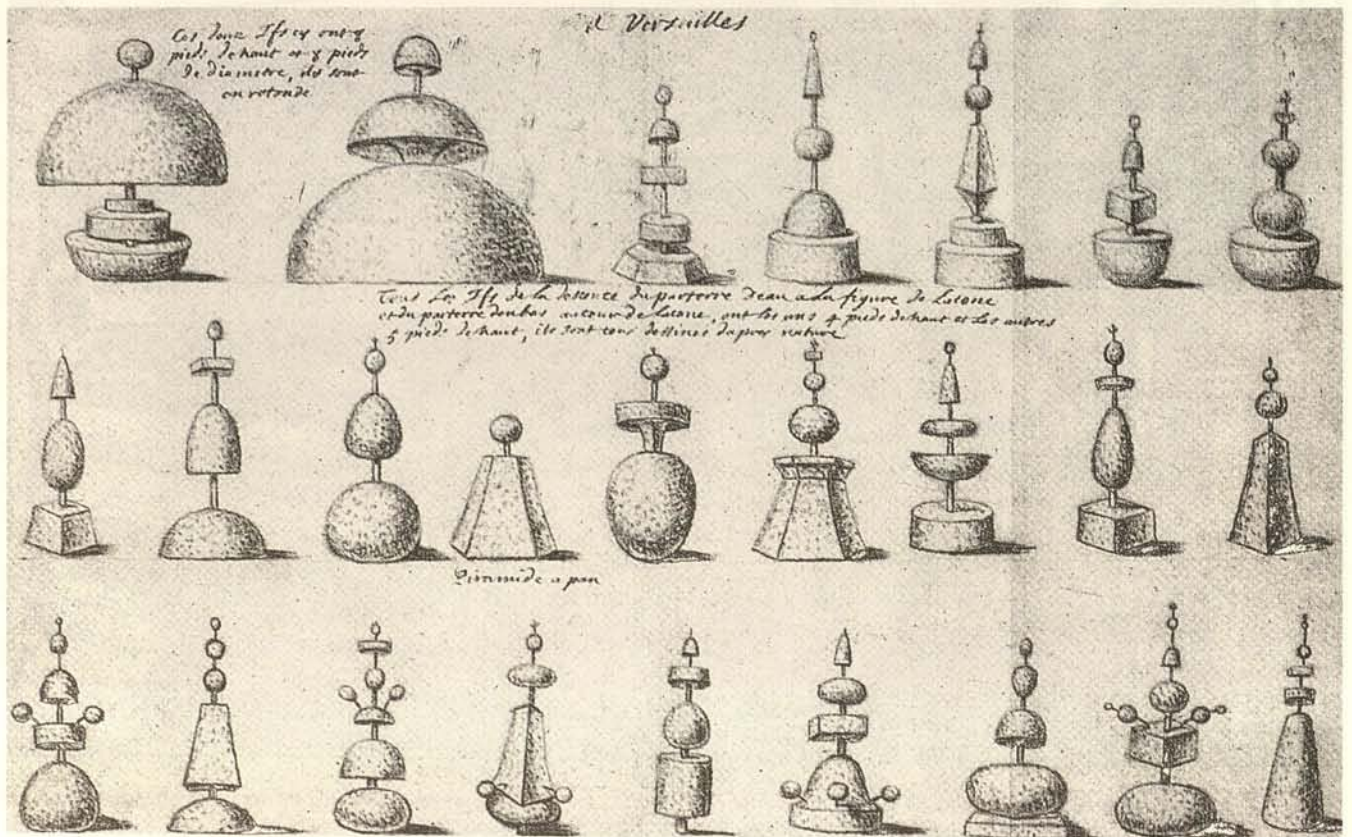 a Versailles
Ces deux Ifs cy ont 7
pieds de haut et 8 pieds
de diametre, ils sont
en rotonde
Tous Les Ifs de la dessente du parterre Deau a La figure de Latone
et du parterre den bas autour de Latone, ont les uns 4 pieds de haut et Les autres
5 pieds de haut, ils sont tous dessines dapres nature
Piramide a pan